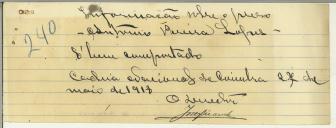 240
Informação sobre o preso
- António Pereira Lopes -
É bem comportado
Cadeia Nacional de Coimbra 27 de
maio de 1913
O Director